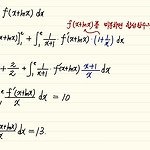 f'(x+lnx) dx
f(x+lnx)를 미분하면
x+lnx)]₁ᵉ + ∫₁ᵉ 1/(x+1) f'(x+lnx)·(1+1/x) dx
+ 2/2 + ∫₁ᵉ 1/(x+1) · f'(x+lnx) (x+1)/x dx
∫₁ᵉ f'(x+lnx)/x dx = 10
(x+lnx)/x dx = 13.